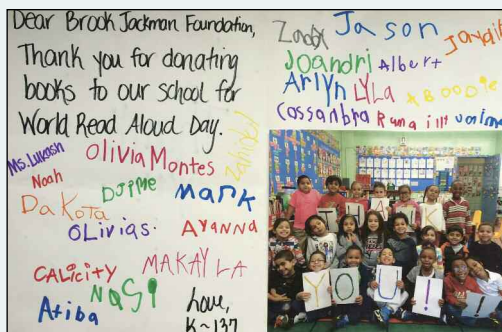 Dear Brook Jackman Foundation,
Thank you for donating
books to our school for
World Read Aloud Day.
Ms. Lukash
Olivia Montes
Noah
Djime
Mark
Dakota
Olivia S.
Ayanna
Calicity
Makayla
Nasi
Atiba
Love,
K-137
Jason
Joandri
Albert
Arlyn
Lyla
ABOODie
Cassandra
THANK
YOU!!